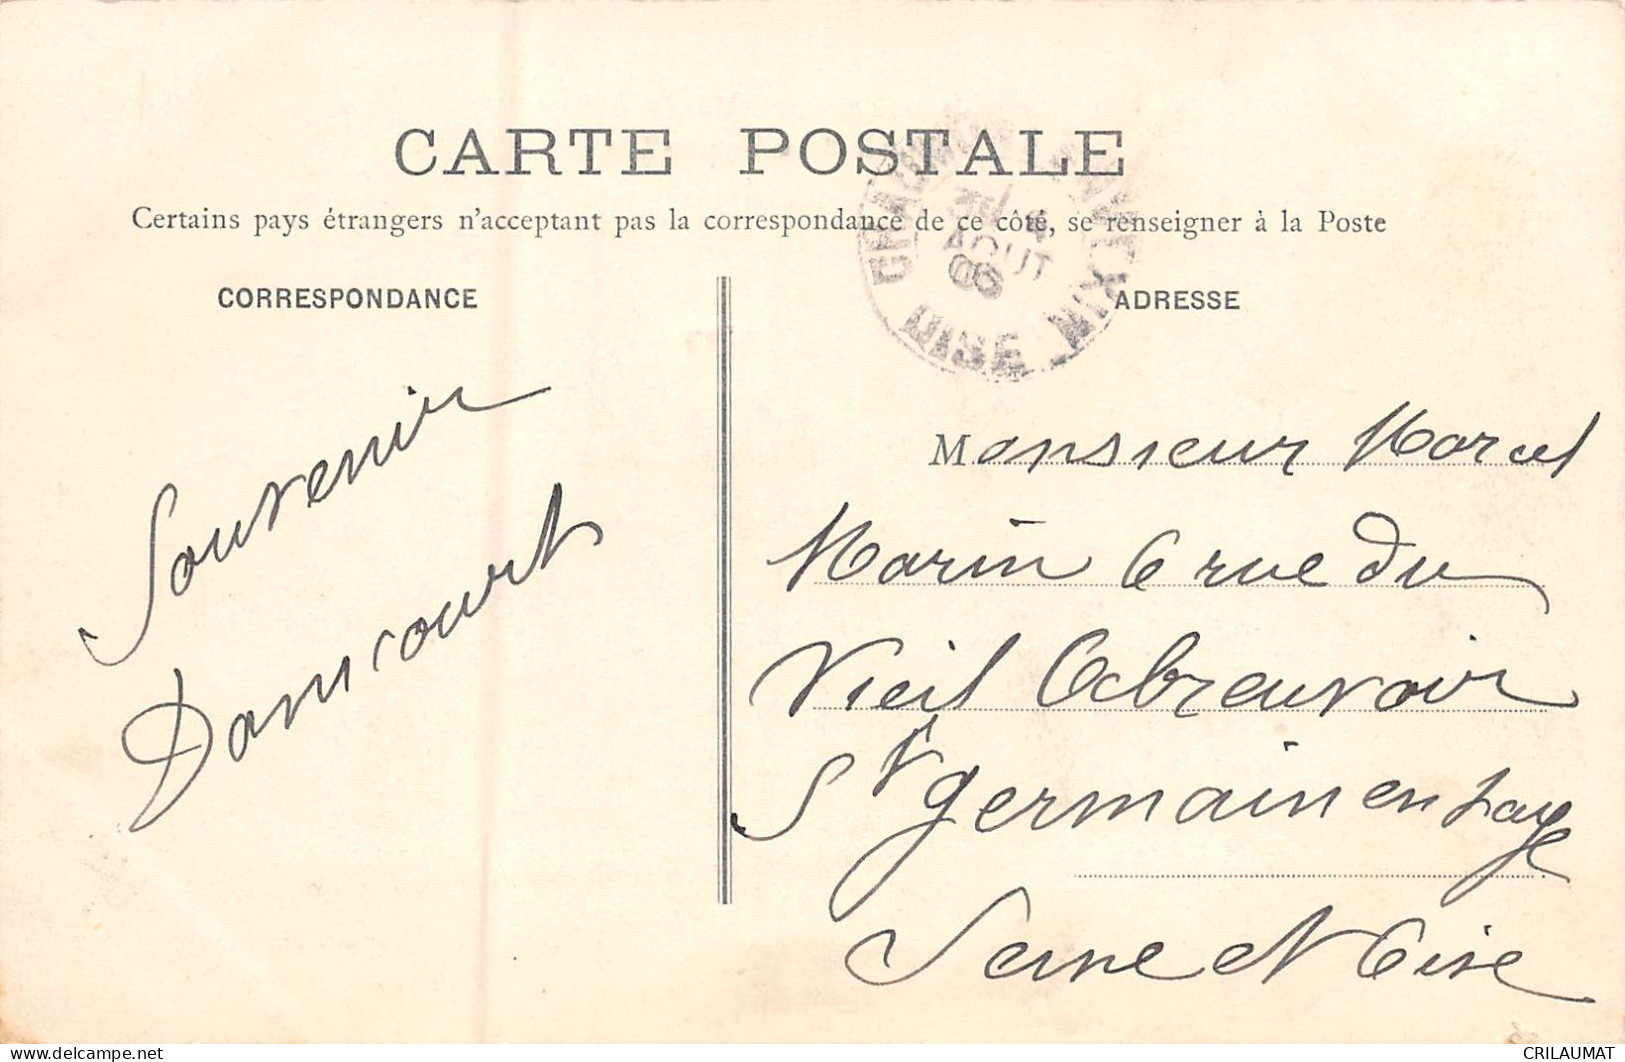 CARTE POSTALE
Certains pays étrangers n'acceptant pas la correspondance de ce côté, se renseigner à la Poste
CORRESPONDANCE
ADRESSE
Souvenir
Damcourt
AOUT
OISE
Monsieur Marcel
Marin 6 rue du
Vieil Abreuvoir
St germain en Laye
Seine et Oise
delcampe.net
CRILAUMAT